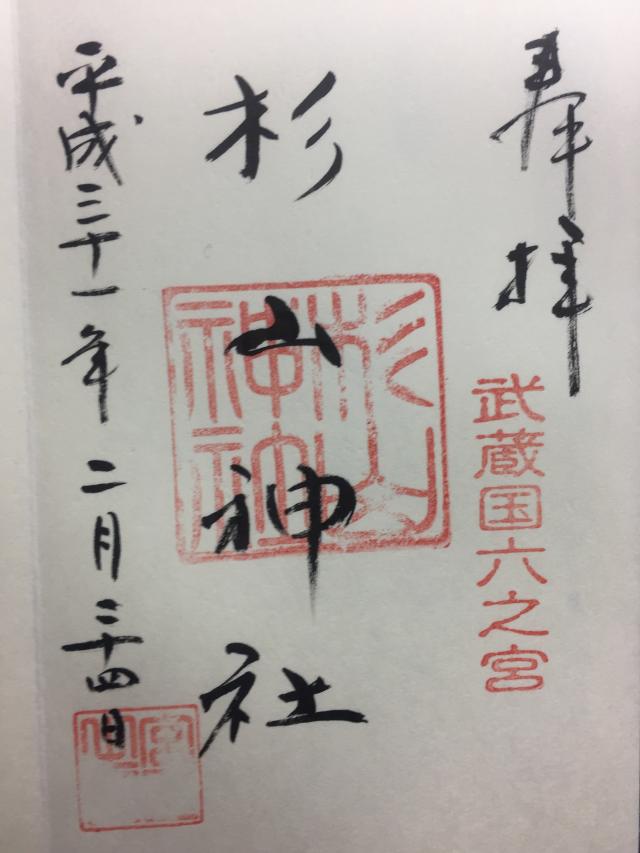 奉拝
武蔵国六之宮
杉山神社
杉山
神社
平成三十一年二月二十四日